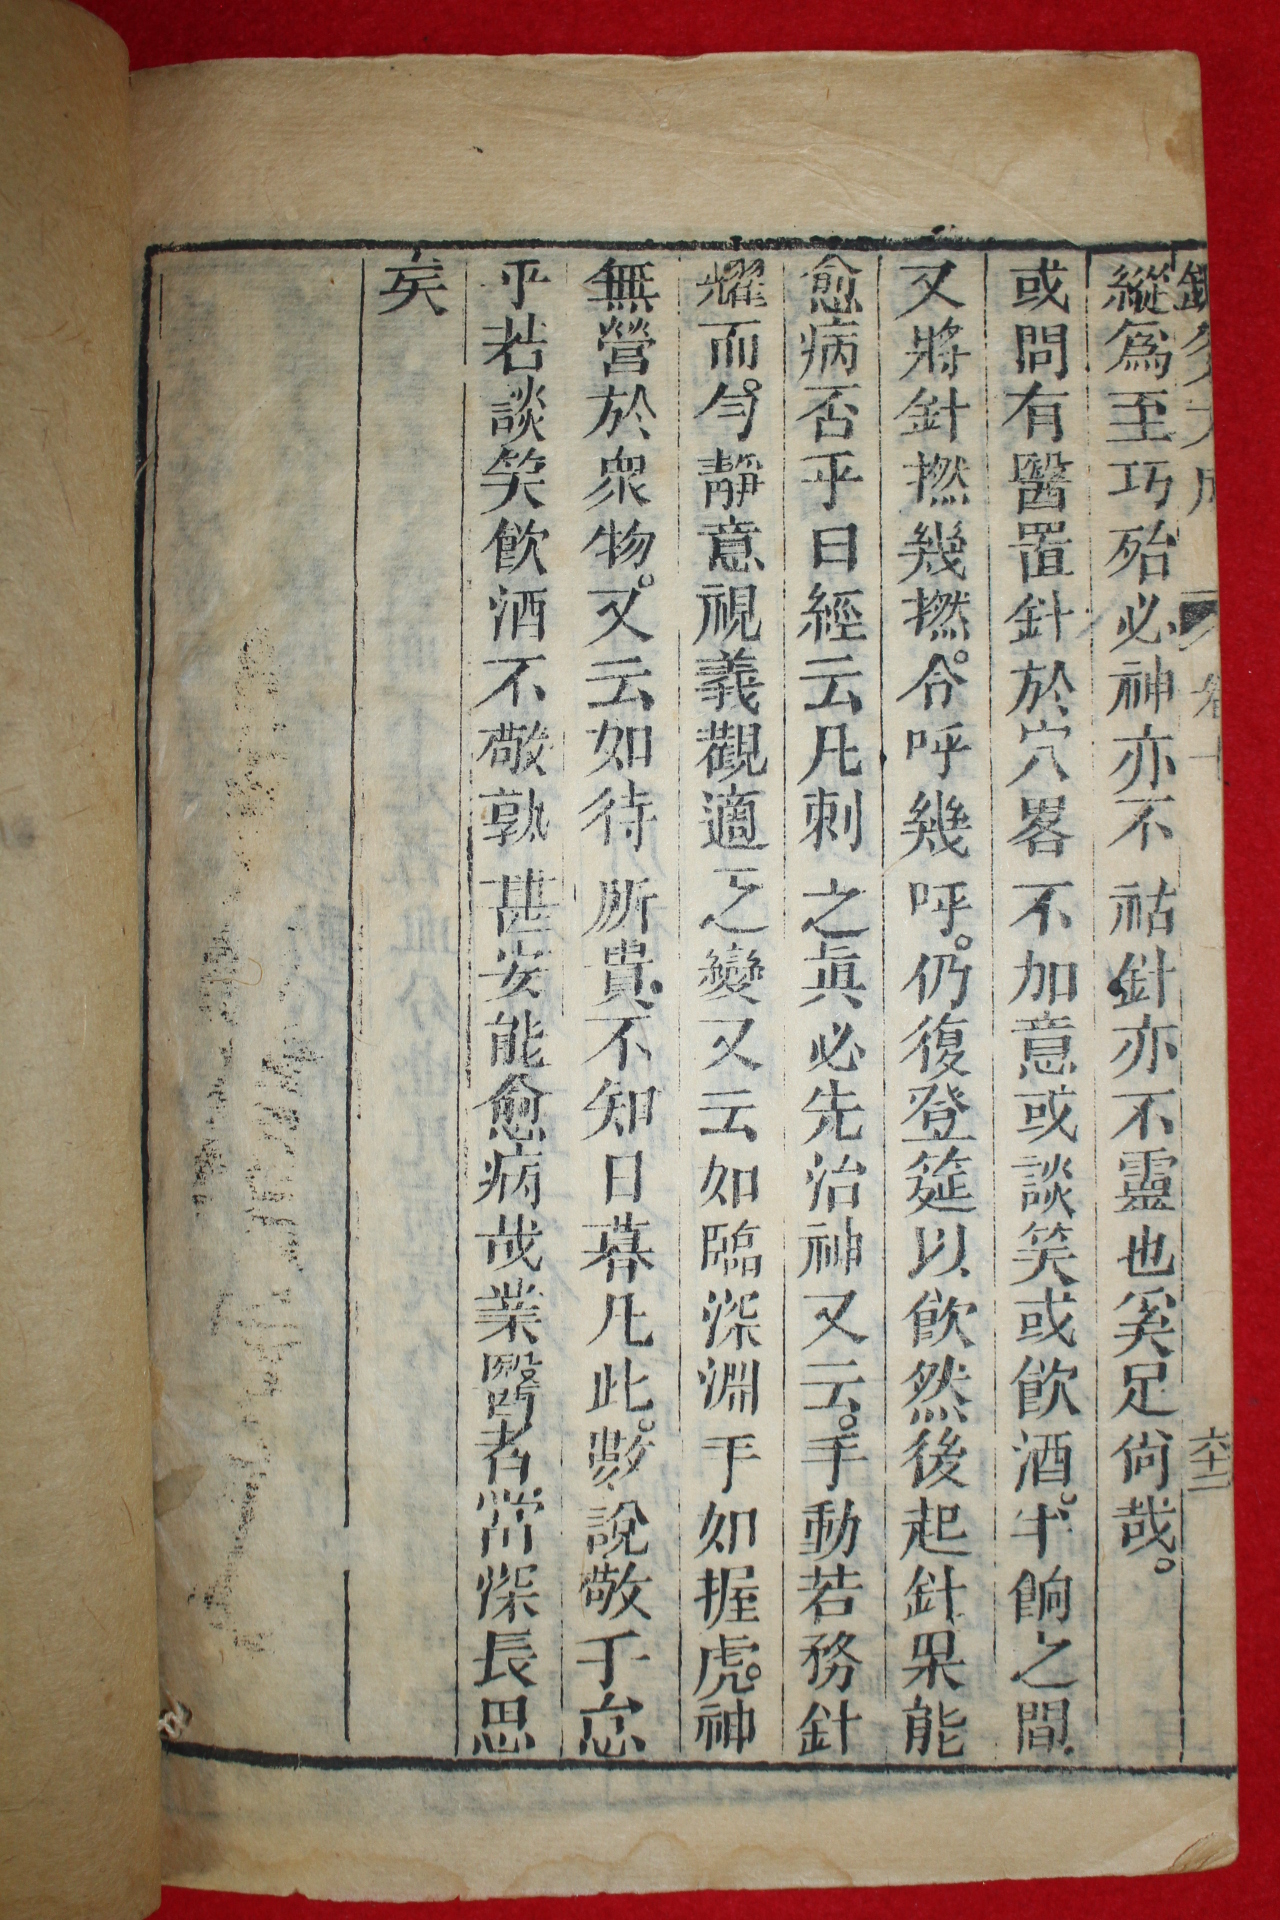 縱爲至巧殆必神亦不祜針亦不靈也奚足尙哉。
或問有醫置針於穴畧不加意或談笑或飮酒。半餉之間
又將針撚幾撚。令呼幾呼。仍復登筵以飮然後起針果能
愈病否乎曰經云凡刺之眞必先治神又云。手動若務針
耀而。勻靜意視義觀適之變又云如臨深淵手如握虎。神
無營於衆物。又云如待所貴不知日暮凡此。數說敬乎怠
乎若談笑飮酒不敬孰甚安能愈病哉業醫者當深長思
矣
卷十
六十二